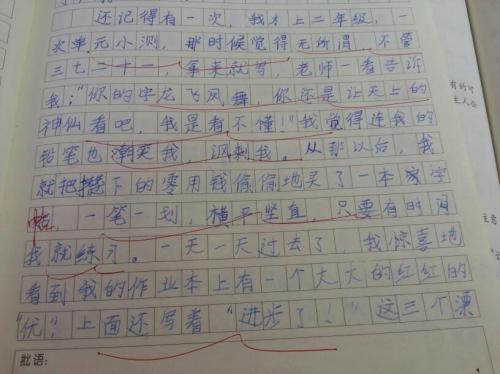 还记得有一次，我才上二年级，一
次单元小测，那时候觉得无所谓，不管
三七二十一，拿来就写，老师一看告诉
我："你的字龙飞凤舞，你还是让天上的
神仙看吧，我是看不懂！"我觉得连我的
铅笔也潮笑我，讽刺我。从那以后，我
就把攒下的零用我偷偷地买了一本字
帖，一笔一划，横平坚直，只要有时间
我就练习。一天一天过去了，我惊喜地
看到我的作业本上有一个大大的红红的
"优"，上面还写着"进步了！"这三个漂
批语：
有的可
主人公
主常